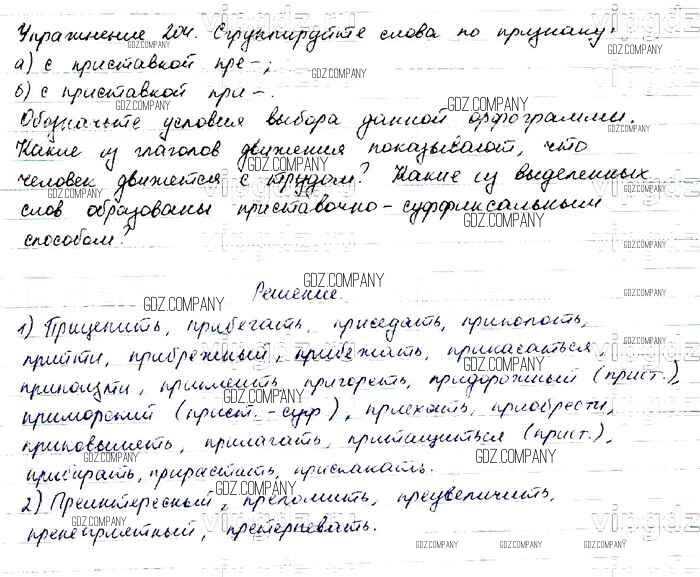 Упражнение 204. Сгруппируйте слова по признаку:
а) с приставкой пре-;
б) с приставкой при-.
Обозначьте условия выбора данной орфограммы.
Какие из глаголов движения показывают, что
человек движется с трудом? Какие из выделенных
слов образованы приставочно-суффиксальным
способом?
Решение.
1) Прицепить, прибегать, приседать, приколоть,
прийти, прибрежный, прибежать, прикасаться,
приползти, приклеить, пригореть, придорожный (прист.),
приморский (прист.-суф), приехать, приобрести,
приковылять, прилагать, притащиться (прист.),
прибирать, прирастить, прискакать.
2) Преинтересный, преломить, преувеличить,
пренеприятный, претерпевать.
GDZ.COMPANY